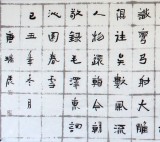 識彎弓射大雕
俱往矣數風流
人物還看今朝
敬錄毛澤東詞
沁園春雪
己丑年冬月